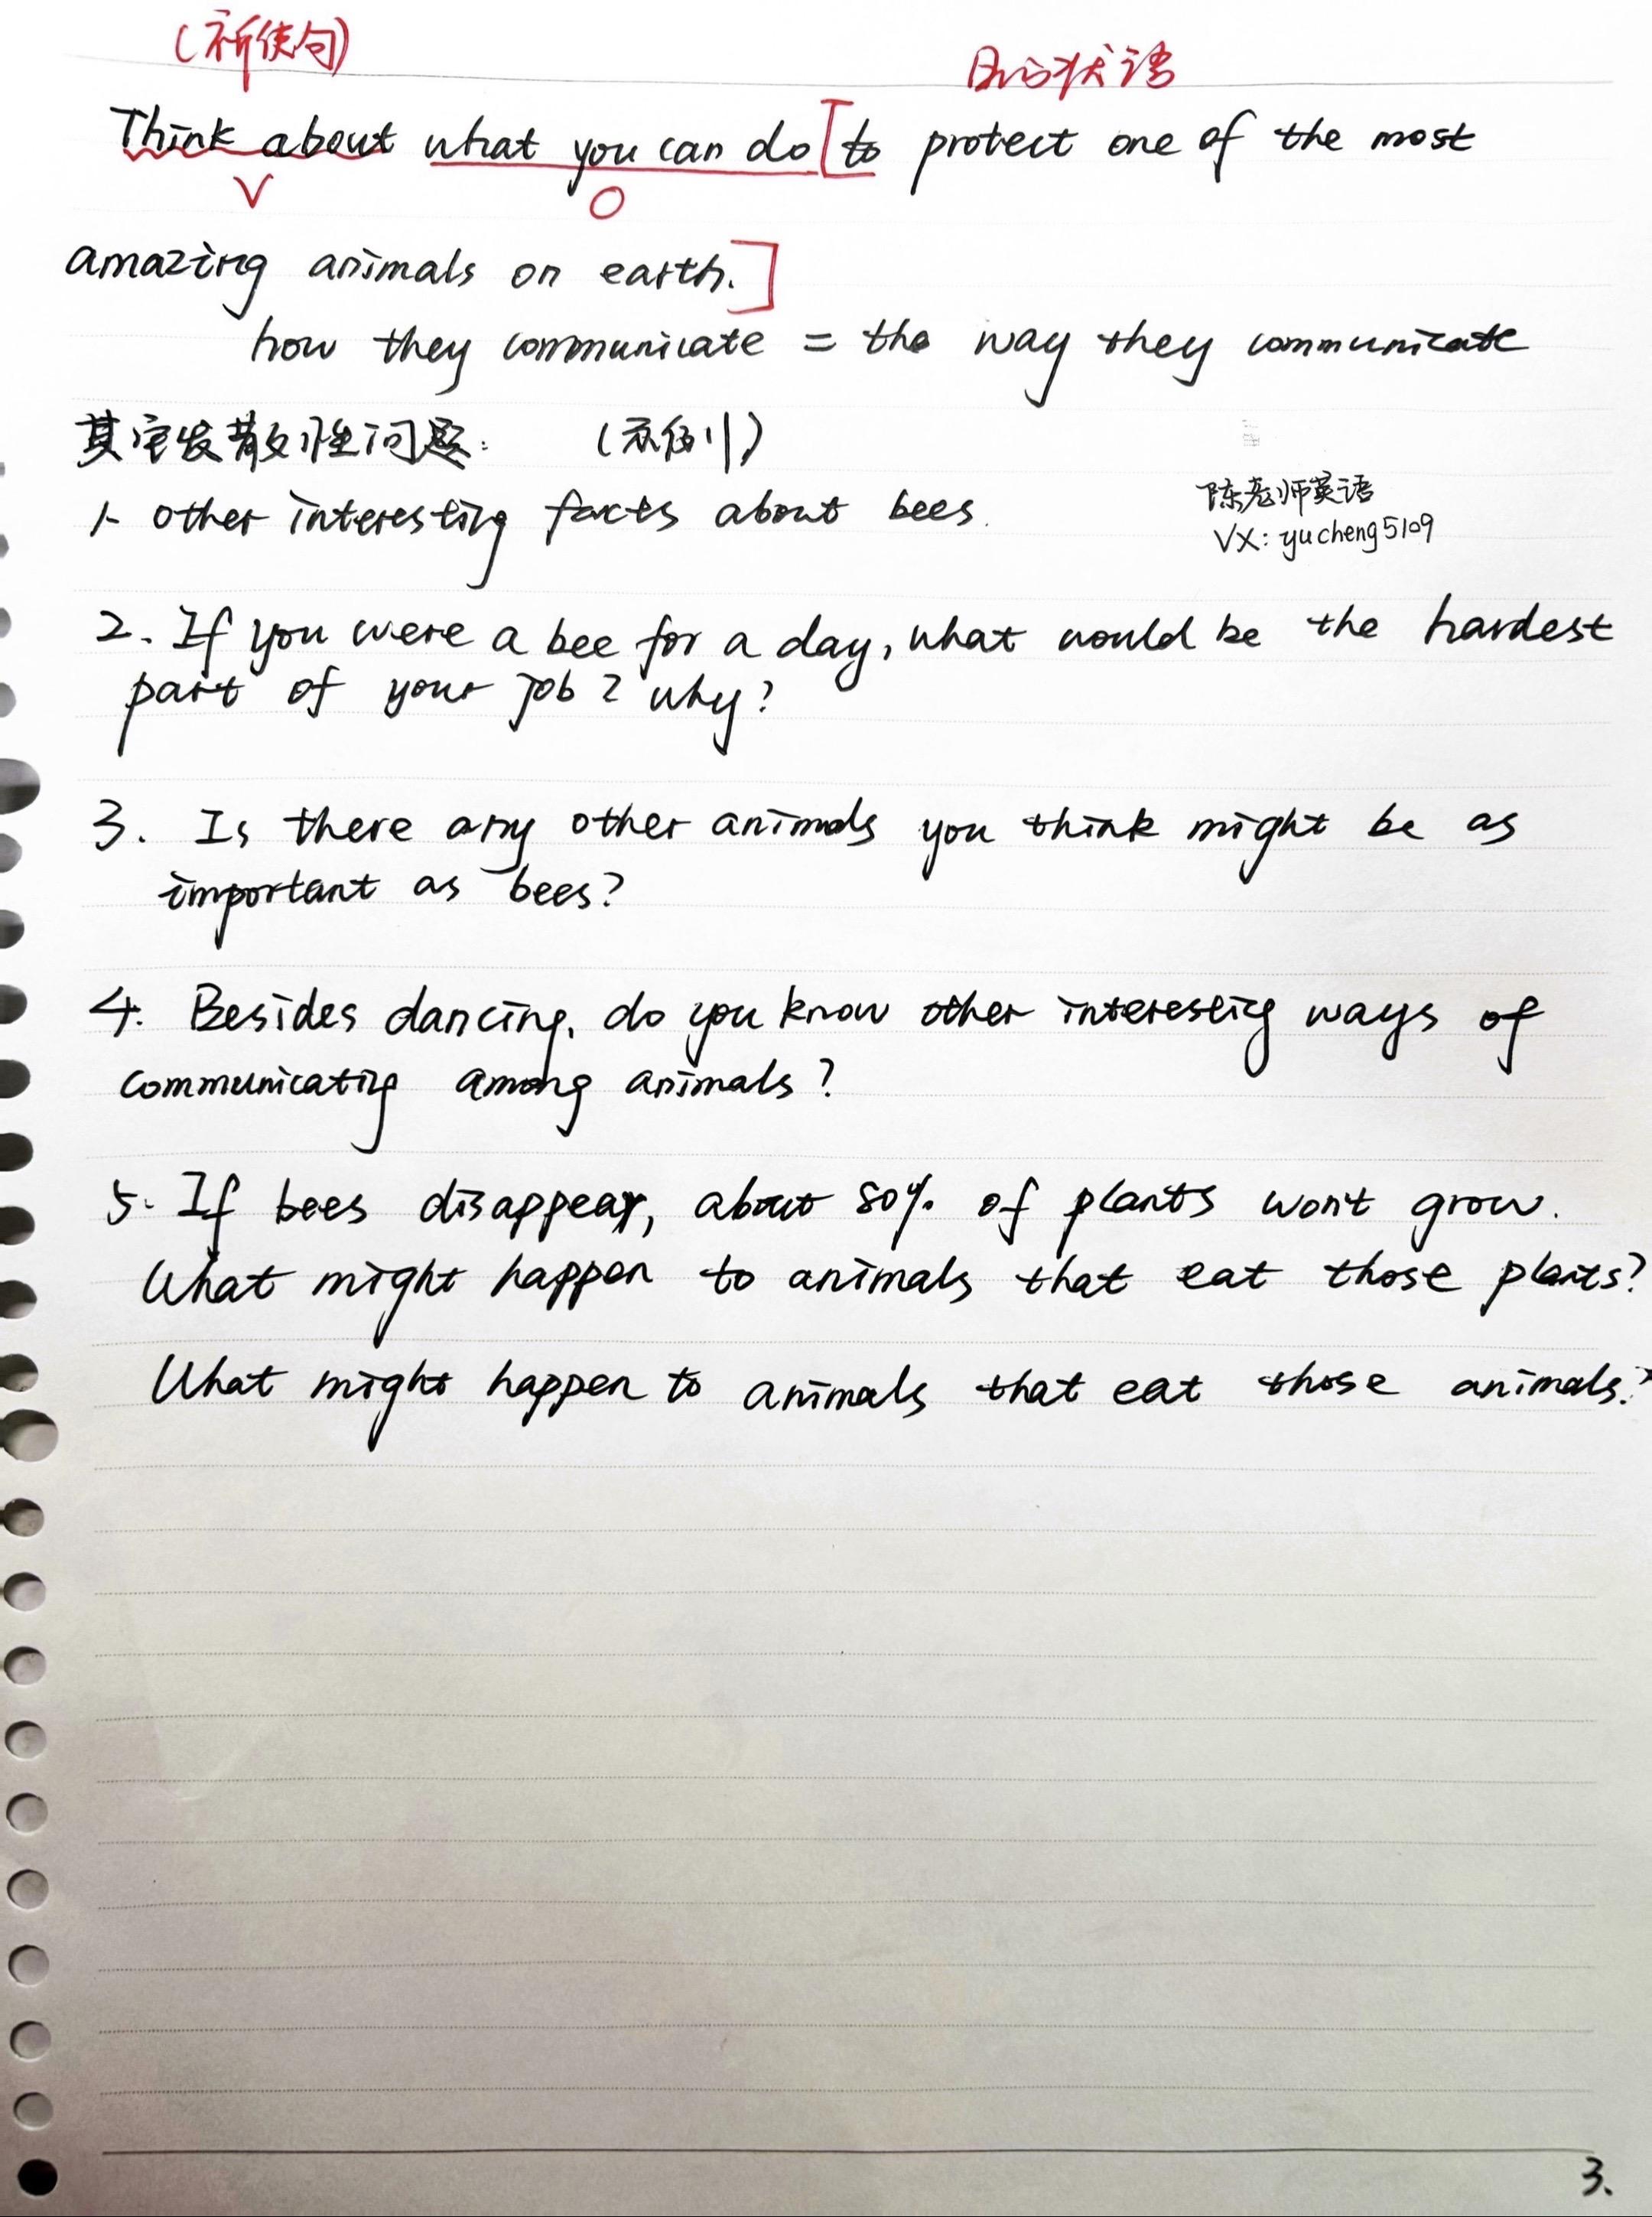 (祈使句)
目的状语
Think about what you can do [to protect one of the most
V
O
amazing animals on earth.]
how they communicate = the way they communicate
其它发散性问题: (示例)
1. other interesting facts about bees.
陈老师英语
VX: yucheng5109
2. If you were a bee for a day, what would be the hardest
part of your job? why?
3. Is there any other animals you think might be as
important as bees?
4. Besides dancing, do you know other interesting ways of
communicating among animals?
5. If bees disappear, about 80% of plants won't grow.
What might happen to animals that eat those plants?
What might happen to animals that eat those animals?
3.